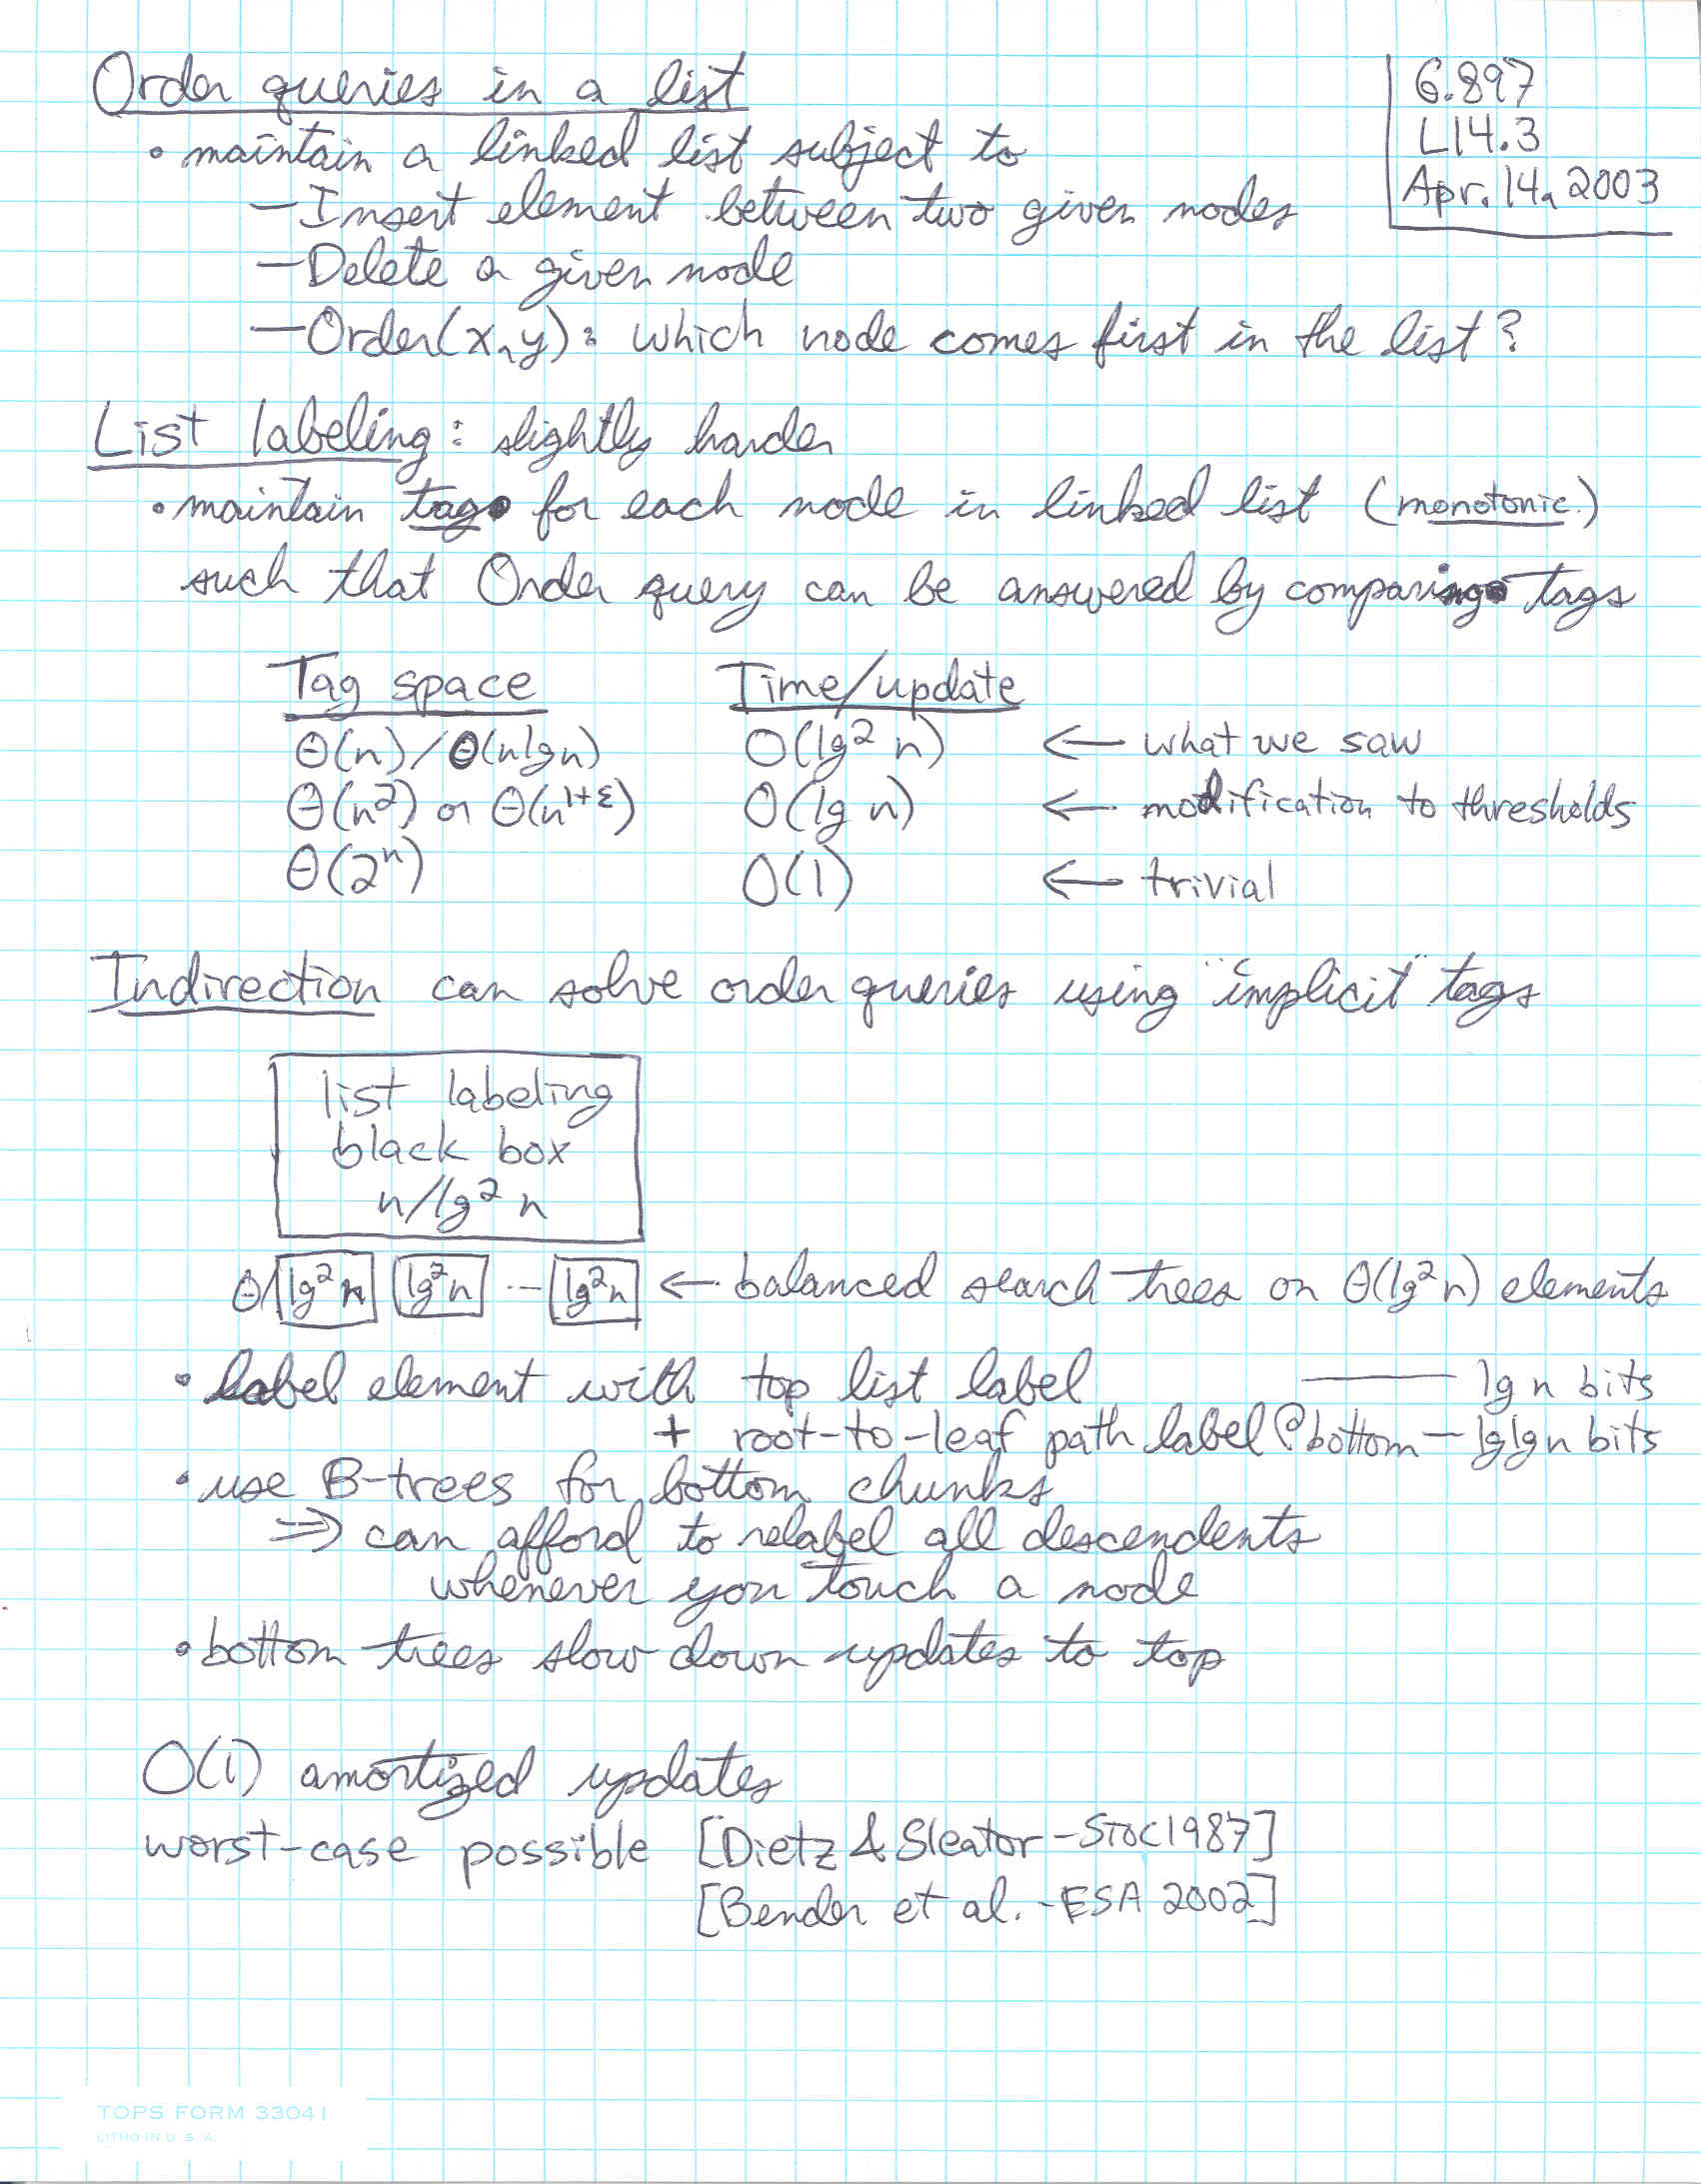 Order queries in a list
6.897
L14.3
Apr. 14, 2003
• maintain a linked list subject to
— Insert element between two given nodes
— Delete a given node
— Order(x,y): which node comes first in the list?
List labeling: slightly harder
• maintain tag for each node in linked list (monotonic)
such that Order query can be answered by comparing tags
Tag space Time/update
Θ(n)/Θ(n lg n) O(lg² n) ← what we saw
Θ(n²) or Θ(n^{1+ε}) O(lg n) ← modification to thresholds
Θ(2ⁿ) O(1) ← trivial
Indirection can solve order queries using "implicit" tags
list labeling
black box
n/lg² n
Θ( lg² n lg² n ... lg² n ← balanced search trees on Θ(lg² n) elements
• label element with top list label — lg n bits
+ root-to-leaf path label @ bottom — lglgn bits
• use B-trees for bottom chunks
⇒ can afford to relabel all descendents
whenever you touch a node
• bottom trees slow down updates to top
O(1) amortized updates
worst-case possible [Dietz & Sleator - STOC 1987]
[Bender et al. - ESA 2002]
TOPS FORM 33041
LITHO IN U. S. A.